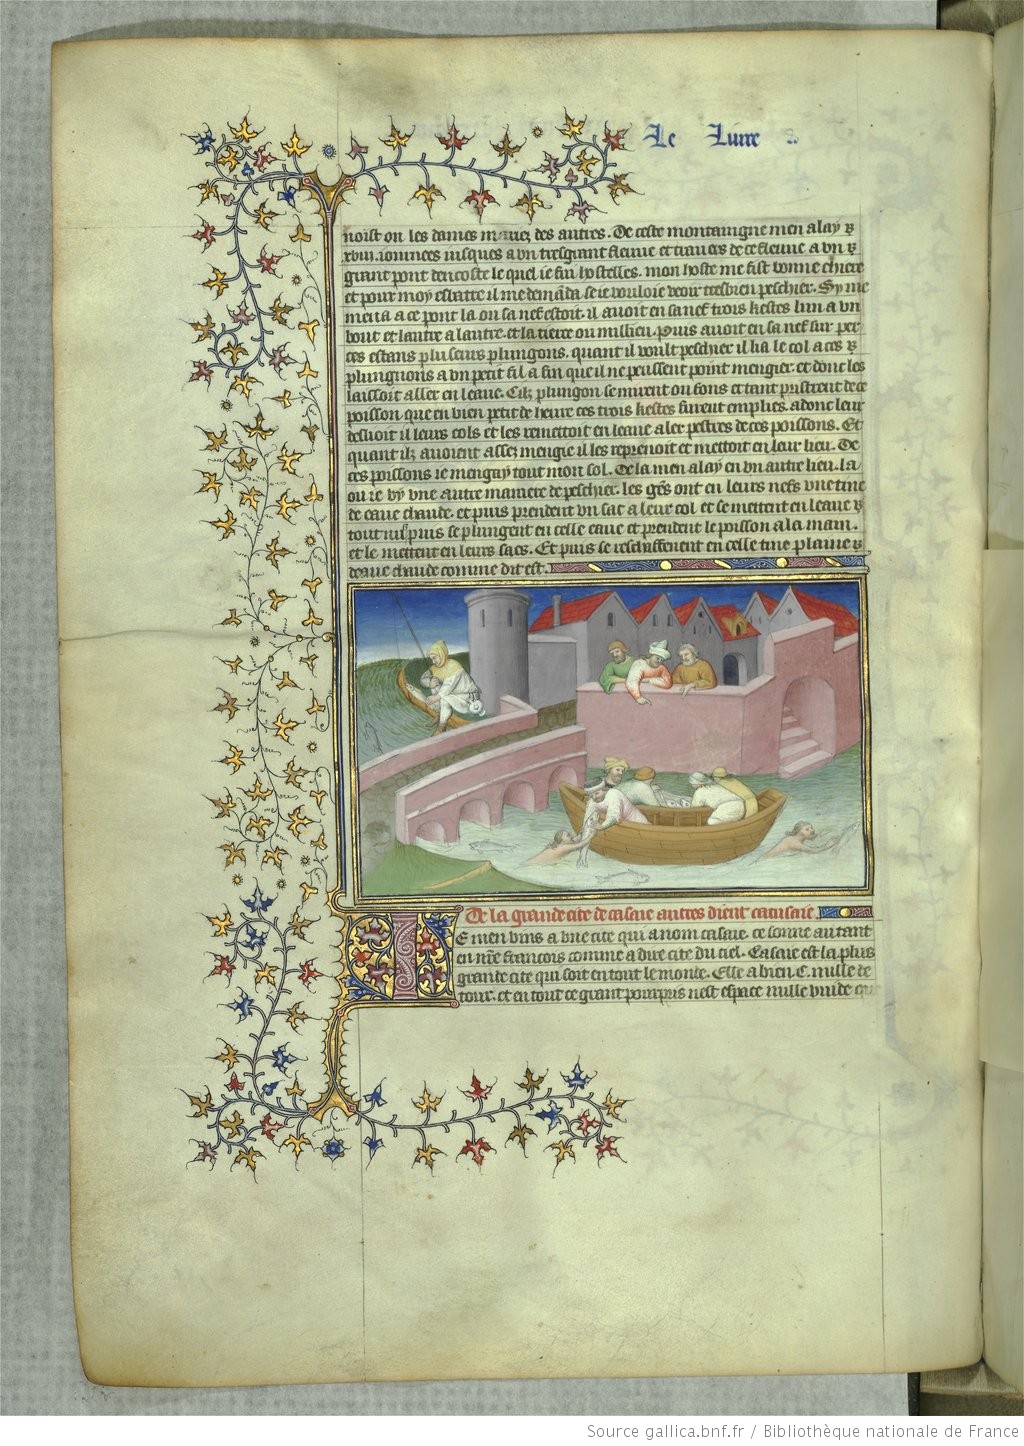 Le Liure
noist ou les dames mariez des autres. De ceste montaingne men alay
xviii. iournees iusques a vn tresgrant fleuue et trauers de ce fleuue a vn
grant pont dencoste le quel ie fu hostelles. mon hoste me fist bonne chiere
et pour moy esbatre il me demāda se ie vouloie veoir tresbien peschier. Sy me
mena a ce pont la ou sa nef estoit. il auoit en sa nef trois hestes lun a vn
bout et lautre a lautre. et la tierce ou milieu. Puis auoit en sa nef sur per
ces estans pluseurs plungons. quant il voult peschier il lia le col a ces
plungnons a vn petit fil a fin que il ne peussent point mengier. et dont les
laissoit aller en leaue. Cilz plungon se mirent ou fons et tant pristrent de ce
poisson que en bien petit de heure ces trois hestes furent emplies. adonc leur
deslioit il leurs cols et les remettoit en leaue a ler pestres de ces poissons. Et
quant ilz auoient assez mengie il les reprenoit et mettoit en leur lieu. De
ces poissons ie mengay tout mon sol. De la men alay en vn autre lieu. la
ou ie vy vne autre maniere de peschier. les gēs ont en leurs nefs vne tine
de eaue chaude. et puis prendent vn sac a leur col et se mettent en leaue
tout nus puis se plungent en celle eaue et prendent le poisson a la main.
et le mettent en leurs sacs. Et puis se reschaffeent en celle tine plaine
deaue chaude comme dit est.
De la grande cite de casaie autres dient catusaie.
Ie men vins a vne cite qui a nom casaie. ce sonne autant
en nr̄e francois comme a dire cite du ciel. Casaie est la plus
grande cite qui soit en tout le monde. Elle a bien C. mille de
tour. et en tout ce grant pourpris nest espace nulle vuide
Source gallica.bnf.fr / Bibliothèque nationale de France